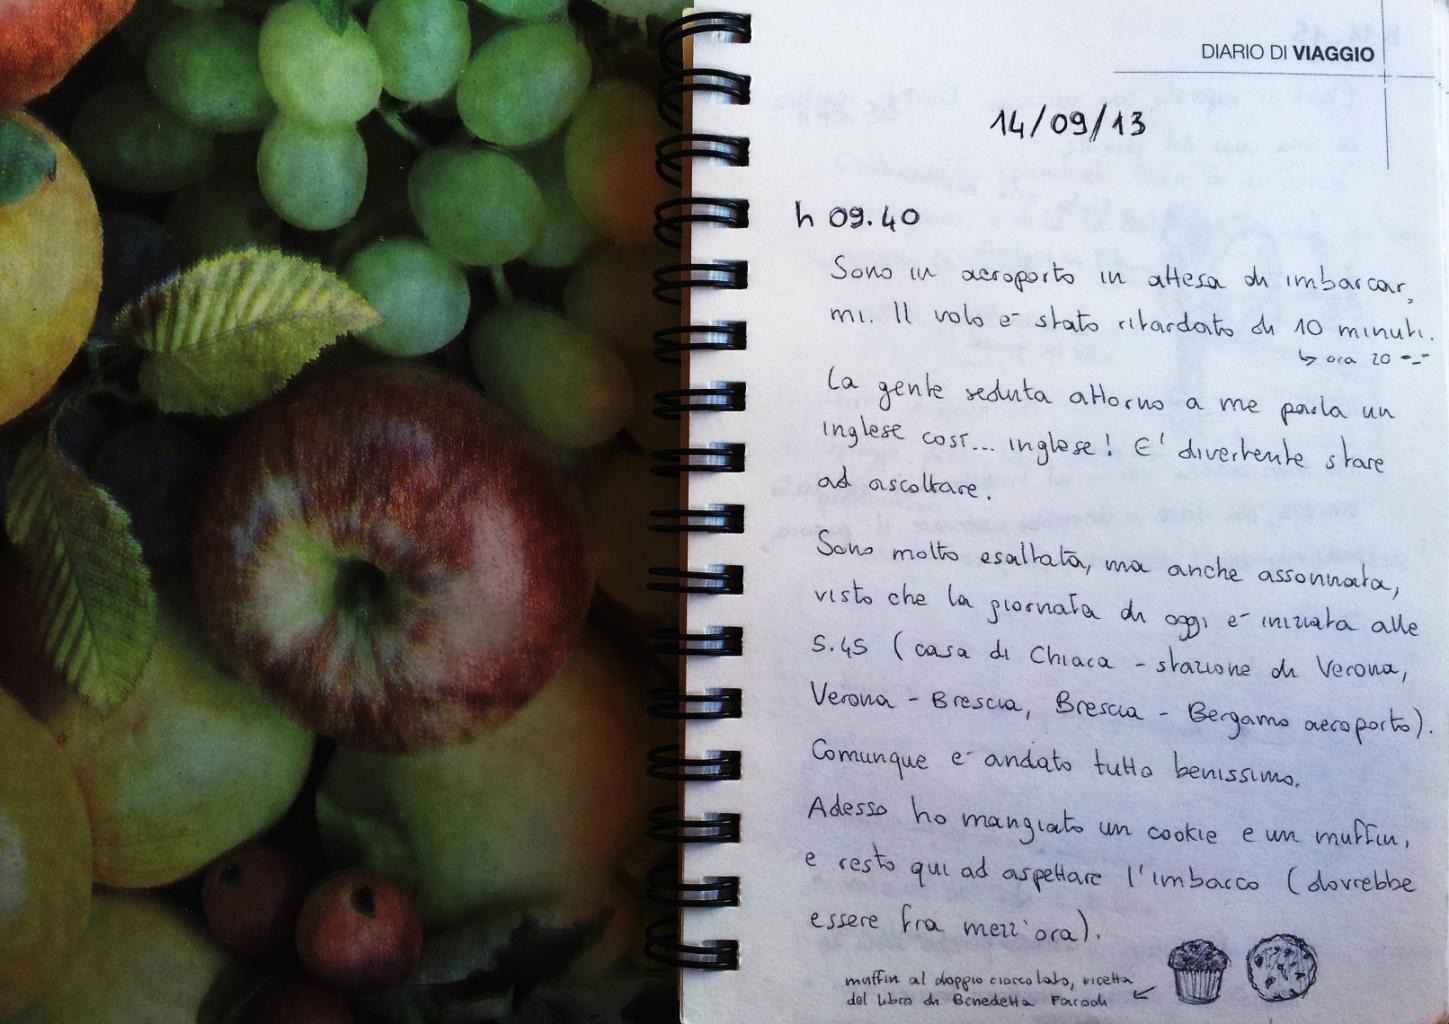 DIARIO DI VIAGGIO
14/09/13
h 09.40
Sono in aeroporto in attesa di imbarcar,
mi. Il volo è stato ritardato di 10 minuti.
↳ ora 20 -_-
La gente seduta attorno a me parla un
inglese così... inglese! E' divertente stare
ad ascoltare.
Sono molto esaltata, ma anche assonnata,
visto che la giornata di oggi è iniziata alle
5.45 (casa di Chiara - stazione di Verona,
Verona - Brescia, Brescia - Bergamo aeroporto).
Comunque è andato tutto benissimo.
Adesso ho mangiato un cookie e un muffin,
e resto qui ad aspettare l'imbarco (dovrebbe
essere fra mezz'ora).
muffin al doppio cioccolato, ricetta
del libro di Benedetta Parodi